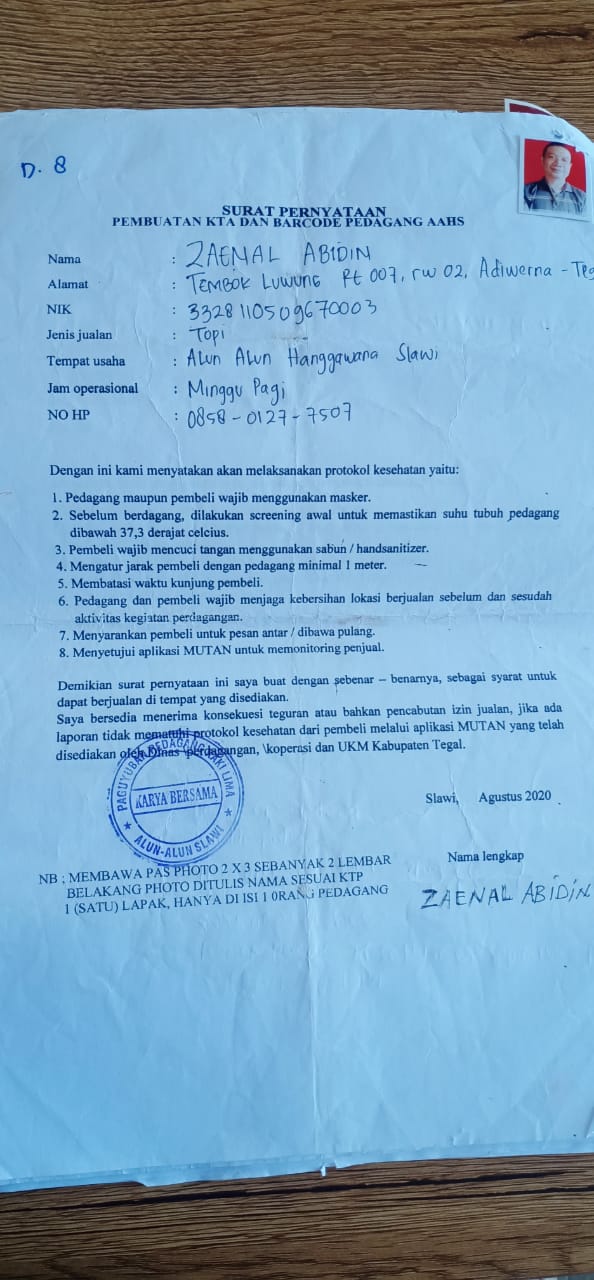 D. 8
SURAT PERNYATAAN
PEMBUATAN KTA DAN BARCODE PEDAGANG AAHS
Nama : ZAENAL ABIDIN
Alamat : TEMBOK LUWUNG Rt 007, rw 02, Adiwerna - Teg
NIK : 3328110509670003
Jenis jualan : Topi
Tempat usaha : Alun Alun Hanggawana Slawi
Jam operasional : Minggu Pagi
NO HP : 0858-0127-7507
Dengan ini kami menyatakan akan melaksanakan protokol kesehatan yaitu:
1. Pedagang maupun pembeli wajib menggunakan masker.
2. Sebelum berdagang, dilakukan screening awal untuk memastikan suhu tubuh pedagang
dibawah 37,3 derajat celcius.
3. Pembeli wajib mencuci tangan menggunakan sabun / handsanitizer.
4. Mengatur jarak pembeli dengan pedagang minimal 1 meter.
5. Membatasi waktu kunjung pembeli.
6. Pedagang dan pembeli wajib menjaga kebersihan lokasi berjualan sebelum dan sesudah
aktivitas kegiatan perdagangan.
7. Menyarankan pembeli untuk pesan antar / dibawa pulang.
8. Menyetujui aplikasi MUTAN untuk memonitoring penjual.
Demikian surat pernyataan ini saya buat dengan sebenar – benarnya, sebagai syarat untuk
dapat berjualan di tempat yang disediakan.
Saya bersedia menerima konsekuesi teguran atau bahkan pencabutan izin jualan, jika ada
laporan tidak mematuhi protokol kesehatan dari pembeli melalui aplikasi MUTAN yang telah
disediakan oleh Dinas \perdagangan, \koperasi dan UKM Kabupaten Tegal.
PAGUYUBAN PEDAGANG KAKI LIMA
KARYA BERSAMA
ALUN-ALUN SLAWI
Slawi, Agustus 2020
Nama lengkap
ZAENAL ABIDIN
NB : MEMBAWA PAS PHOTO 2 X 3 SEBANYAK 2 LEMBAR
BELAKANG PHOTO DITULIS NAMA SESUAI KTP
1 (SATU) LAPAK, HANYA DI ISI 1 0RANG PEDAGANG